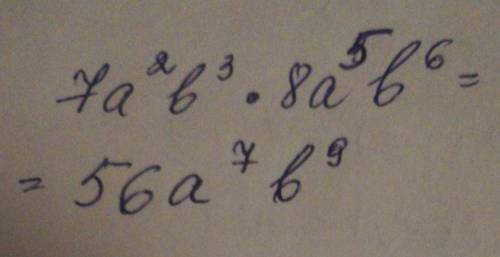 7a²b³ · 8a⁵b⁶ =
= 56a⁷b⁹